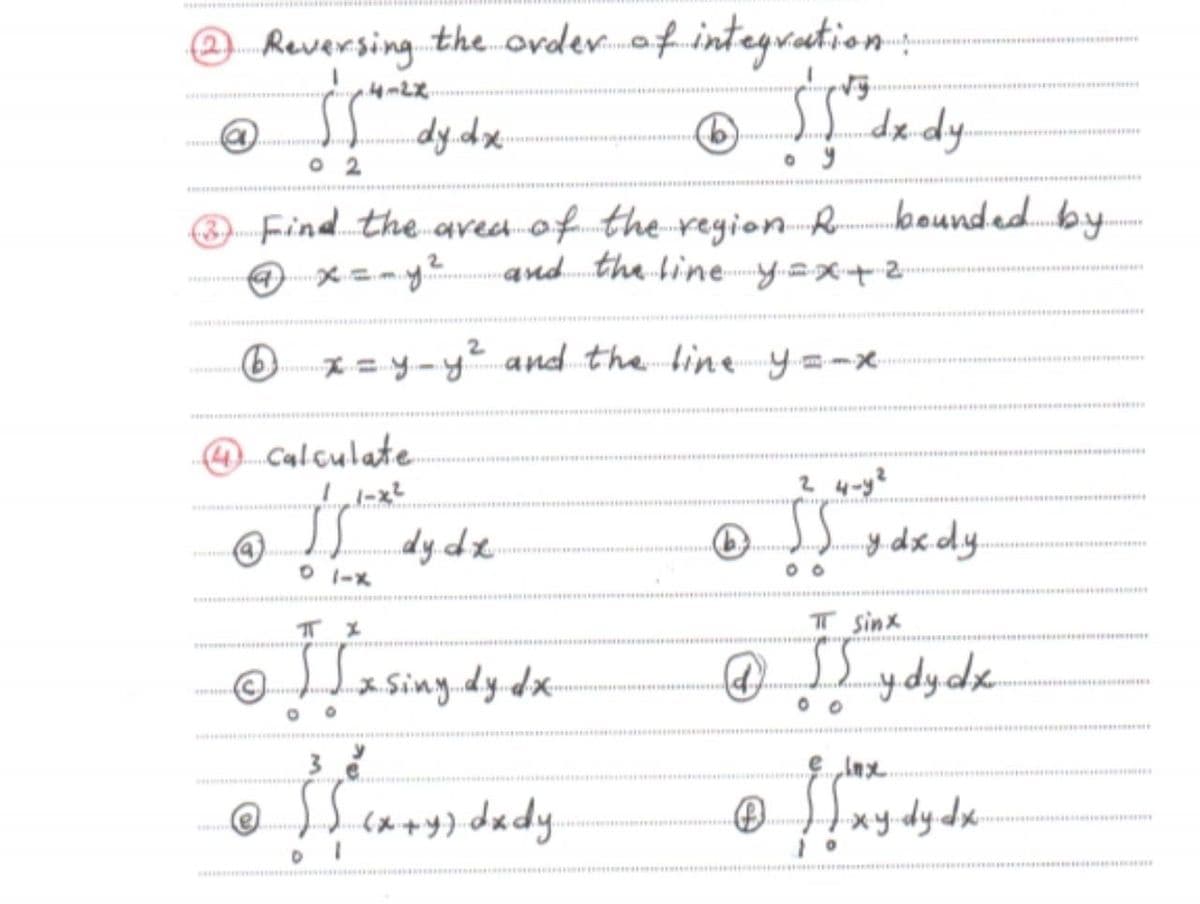 ② Reversing the order of integration :
ⓐ ∫₀¹ ∫₂^(4-2x) dy dx ⓑ ∫₀¹ ∫_y^(√y) dx dy
③ Find the area of the region R bounded by
ⓐ x = -y² and the line y = x + 2
ⓑ x = y - y² and the line y = -x
④ Calculate
ⓐ ∫₀¹ ∫_(1-x)^(1-x²) dy dx ⓑ ∫₀² ∫₀^(4-y²) y dx dy
ⓒ ∫₀^π ∫₀^x x sin y dy dx ⓓ ∫₀^π ∫₀^(sin x) y dy dx
ⓔ ∫₀³ ∫₁^(e^y) (x + y) dx dy ⓕ ∫₁^e ∫₀^(ln x) x y dy dx